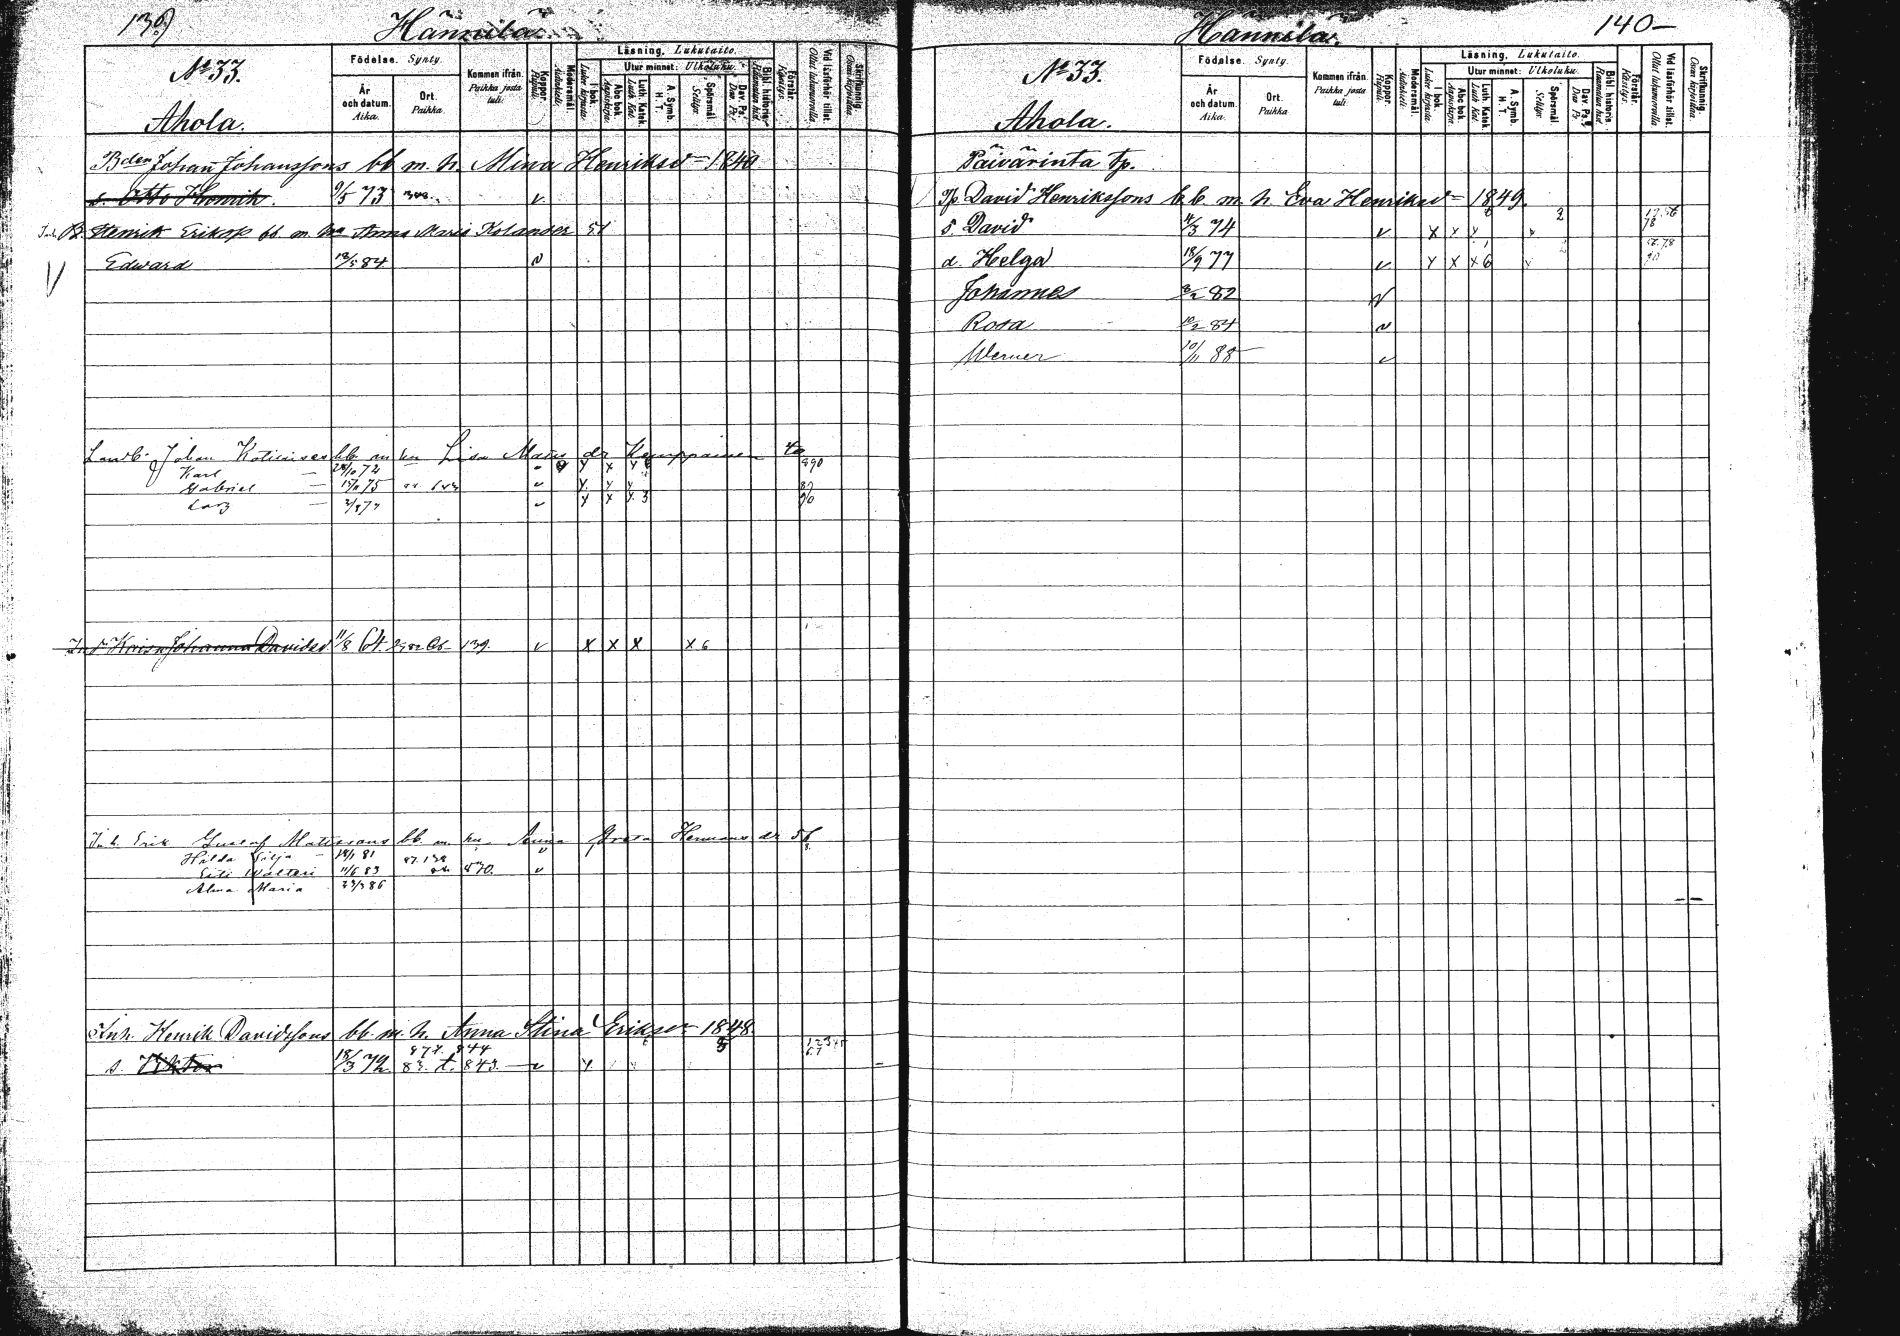 139
Hännilä.
No 33.
Ahola.
Födelse. Synty.
År och datum. Aika.
Ort. Paikka
Kommen ifrån. Paikka josta tuli.
Koppor. Rupuli.
Modersmål. Äidinkieli.
Läsning. Lukutaito.
I bok. Luku kirjasta.
Utur minnet: Ulkoluku.
Abc bok. Aapiskirja.
Luth. Katek. Luth. Kat.
A. Symb. H. T.
Spörsmål. Selitys.
Dav. Ps. Daw. Ps.
Bibl. historia. Raamatun hist.
Förstår. Käsitys.
Vid läsförhör tillst. Ollut lukukunnalla
Skriftkunnig. Osaa kirjoittaa.
Bden Johan Johanssons bb m. h. Mina Henriksd 1840
s. Otto Henrik. 9/5 73 v
Inh. B. Henrik Eriks bb. m. hu Anna Maria Kolander 51
Edward 12/5 84 v
Landb. Johan Kotiaises bb. m hu Lisa Mats dr Kemppainen 40
Karl — 28/10 72 x x 890
Gabriel — 15/11 75 v x x x 87
Lars — 2/8 77 v x x x 3 90
Johanna Davidsd. 11/8 64. 139. v x x x x 6
Inh. Erik Gustaf Matssons bb. m. hu Anna Greta Hermans dr 56
Hilda Silja — 18/1 81 87. 138 v
Eeli Walteri 11/6 83 v
Alma Maria 23/3 86
Inh. Henrik Davidssons bb. m. h. Anna Stina Eriksd 1848.
877. 844
s. Viktor 18/3 72. 83. t. 843. v x
140
Hännilä.
No 33.
Ahola.
Födelse. Synty.
År och datum. Aika.
Ort. Paikka
Kommen ifrån. Paikka josta tuli.
Koppor. Rupuli.
Modersmål. Äidinkieli.
Läsning. Lukutaito.
I bok. Luku kirjasta.
Utur minnet: Ulkoluku.
Abc bok. Aapiskirja.
Luth. Katek. Luth. Kat.
A. Symb. H. T.
Spörsmål. Selitys.
Dav. Ps. Daw. Ps.
Bibl. historia. Raamatun hist.
Förstår. Käsitys.
Vid läsförhör tillst. Ollut lukukunnalla
Skriftkunnig. Osaa kirjoittaa.
Päivärinta Tp.
Tp. David Henrikssons bb. m. h Eva Henriksd 1849.
s. David 11/3 74 v x x x 2
d. Helga 18/9 77 v x x x 6 v
Johannes 3/2 82 v
Rosa 10/2 84 v
Werner 10/11 88 v